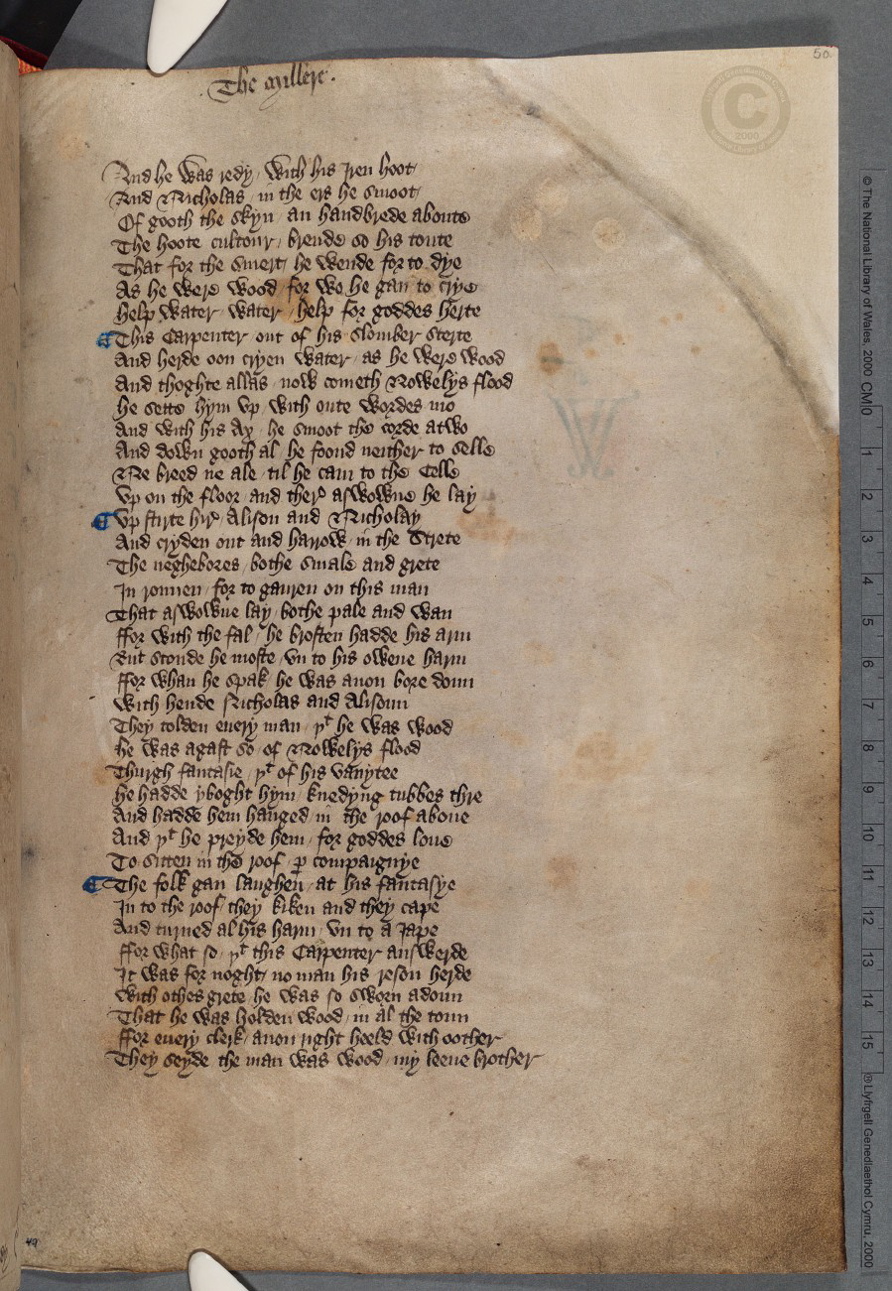 50
The Millere.
And he was redy / with his Iren hoot
And Nicholas / in the ers he smoot
Of gooth the skyn / an handbrede aboute
The hoote cultour / brende so his toute
That for the smert / he wende for to dye
As he were wood / for wo he gan to crye
Help water / water / help for goddes herte
¶ This Carpenter out of his slomber sterte
And herde oon cryen water / as he were wood
And thoghte allas / now cometh Nowelys flood
He sette hym vp / with oute wordes mo
And with his Ax / he smoot the corde atwo
And down gooth al / he foond neither to selle
Ne breed ne ale / til he cam to the Celle
Vp on the floor / and ther aswowne he lay
¶ Vp stirte hir / Alison and Nicholay
And cryden out and harrow / in the Strete
The neghebores / bothe smale and grete
In ronnen / for to gauren on this man
That aswowne lay / bothe pale and wan
ffor with the fal / he brosten hadde his arm
But stonde he moste / vn to his owene harm
ffor whan he spak / he was anon bore doun
With hende Nicholas and Alisoun
They tolden euery man / þt he was wood
He was agast so / of Nowelys flood
Thurgh fantasie / þt of his vanytee
He hadde yboght hym / knedyng tubbes thre
And hadde hem hanged / in the roof aboue
And þt he preyde hem / for goddes loue
To sitten in the roof / ꝑ compaignye
¶ The folk gan laughen / at his fantasye
In to the roof / they kiken and they cape
And turned al his harm / vn to a Iape
ffor what so / þt this Carpenter answerde
It was for noght / no man his reson herde
With othes grete / he was so sworn adoun
That he was holden wood / in al the toun
ffor euery clerk / anon right heeld with oother
They seyde the man was wood / my leeue brother
49
C
2000
© The National Library of Wales, 2000
CM 0 1 2 3 4 5 6 7 8 9 10 11 12 13 14 15
® Llyfrgell Genedlaethol Cymru, 2000